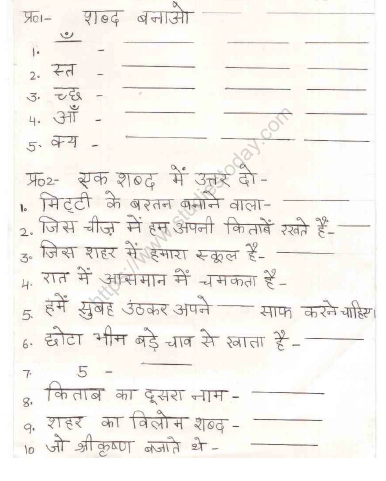 प्र०1- शब्द बनाओ
1. ँ - 
2. स्त -
3. च्छ -
4. आँ -
5. क्य -
प्र०2- एक शब्द में उत्तर दो -
1. मिट्टी के बरतन बनाने वाला-
2. जिस चीज़ में हम अपनी किताबें रखते है-
3. जिस शहर में हमारा स्कूल है-
4. रात में आसमान में चमकता है-
5. हमें सुबह उठकर अपने ____ साफ करने चाहिए।
6. छोटा भीम बड़े चाव से खाता है -
7. 5 -
8. किताब का दूसरा नाम -
9. शहर का विलोम शब्द -
10 जो श्रीकृष्ण बजाते थे -
https://www.studiestoday.com